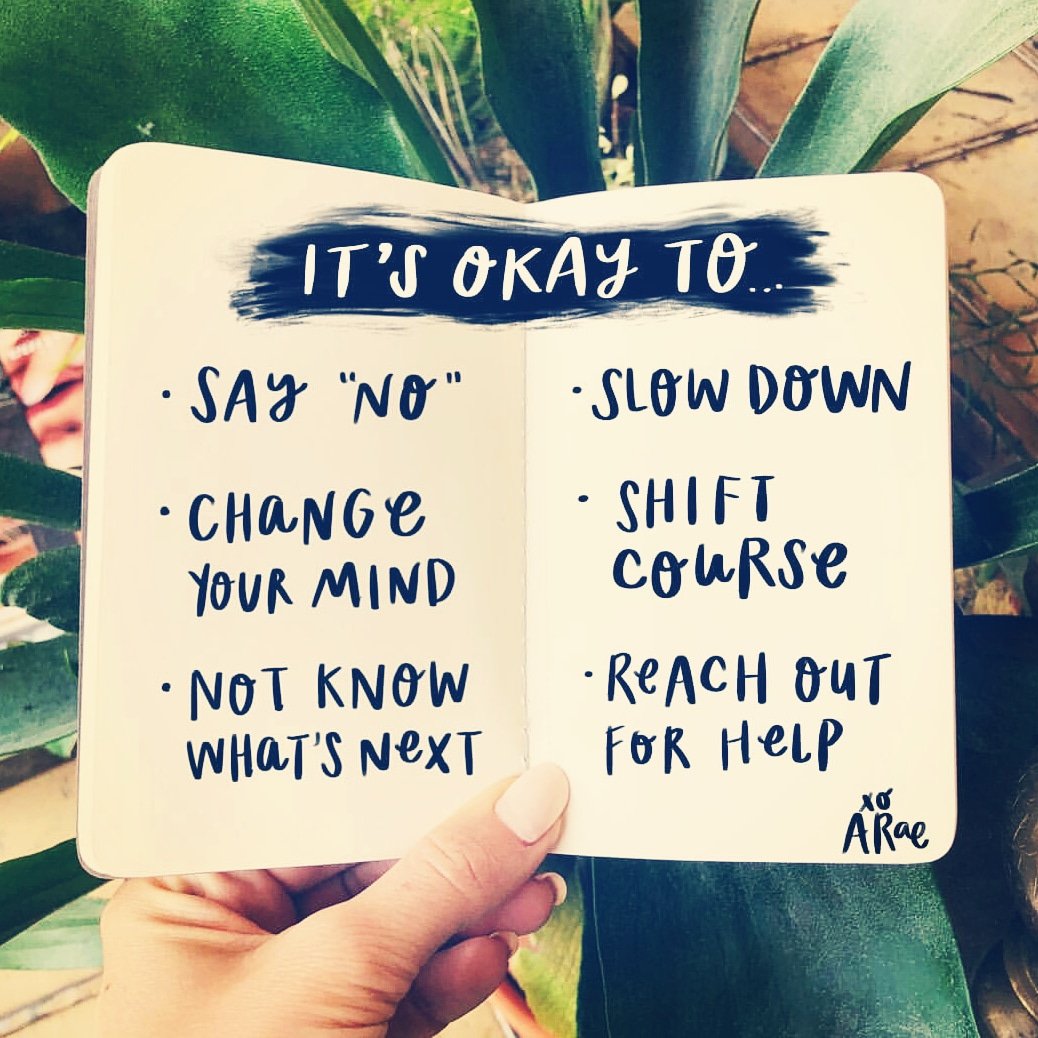 IT'S OKAY TO...
· SAY "NO"
· CHANGE
YOUR MIND
· NOT KNOW
WHAT'S NEXT
· SLOW DOWN
· SHIFT
COURSE
· REACH OUT
FOR HELP
xo
ARae